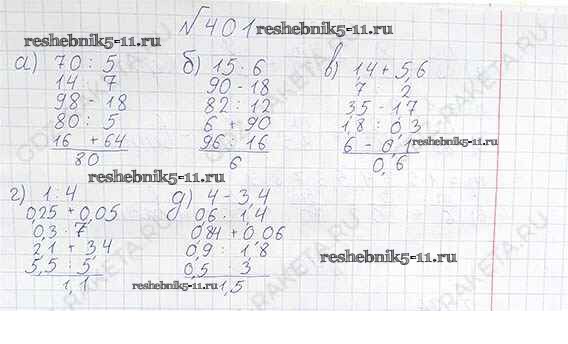 №401
reshebnik5-11.ru
а) 70 : 5
14 · 7
98 - 18
80 : 5
16 + 64
80
б) 15 · 6
90 - 18
82 : 12
6 + 90
96 : 16
6
в) 14 + 5,6
7 : 2
3,5 - 1,7
1,8 : 0,3
6 - 0,1
0,6
reshebnik5-11.ru
reshebnik5-11.ru
г) 1 : 4
0,25 + 0,05
0,3 · 7
2,1 + 3,4
5,5 : 5
1,1
д) 4 - 3,4
0,6 · 1,4
0,84 + 0,06
0,9 : 1,8
0,5 · 3
1,5
reshebnik5-11.ru
reshebnik5-11.ru